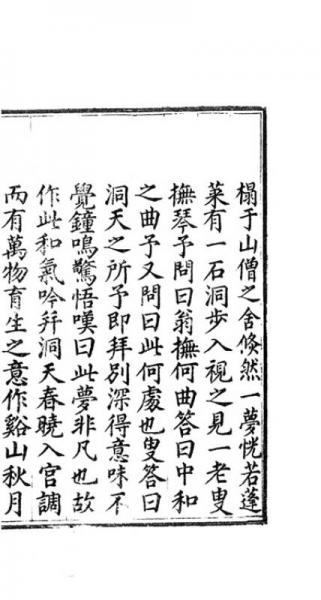 榻于山僧之舍倏然一夢恍若蓬
萊有一石洞步入視之見一老叟
撫琴予問曰翁撫何曲答曰中和
之曲予又問曰此何處也叟答曰
洞天之所予即拜别深得意味不
覺鐘鳴驚悟嘆曰此夢非凡也故
作此和氣吟并洞天春曉入宫調
而有萬物育生之意作谿山秋月